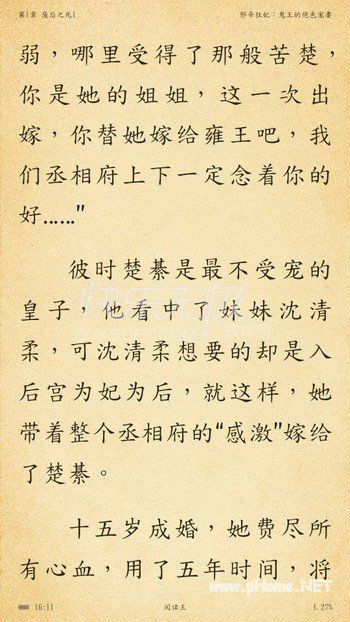 第1章 废后之死1 邪帝狂妃：鬼王的绝色宠妻
弱，哪里受得了那般苦楚，
你是她的姐姐，这一次出
嫁，你替她嫁给雍王吧，我
们丞相府上下一定念着你的
好……"
彼时楚綦是最不受宠的
皇子，他看中了妹妹沈清
柔，可沈清柔想要的却是入
后宫为妃为后，就这样，她
带着整个丞相府的“感激”嫁给
了楚綦。
十五岁成婚，她费尽所
有心血，用了五年时间，将
www.pHome.NET
16:11 阅读王 1.27%